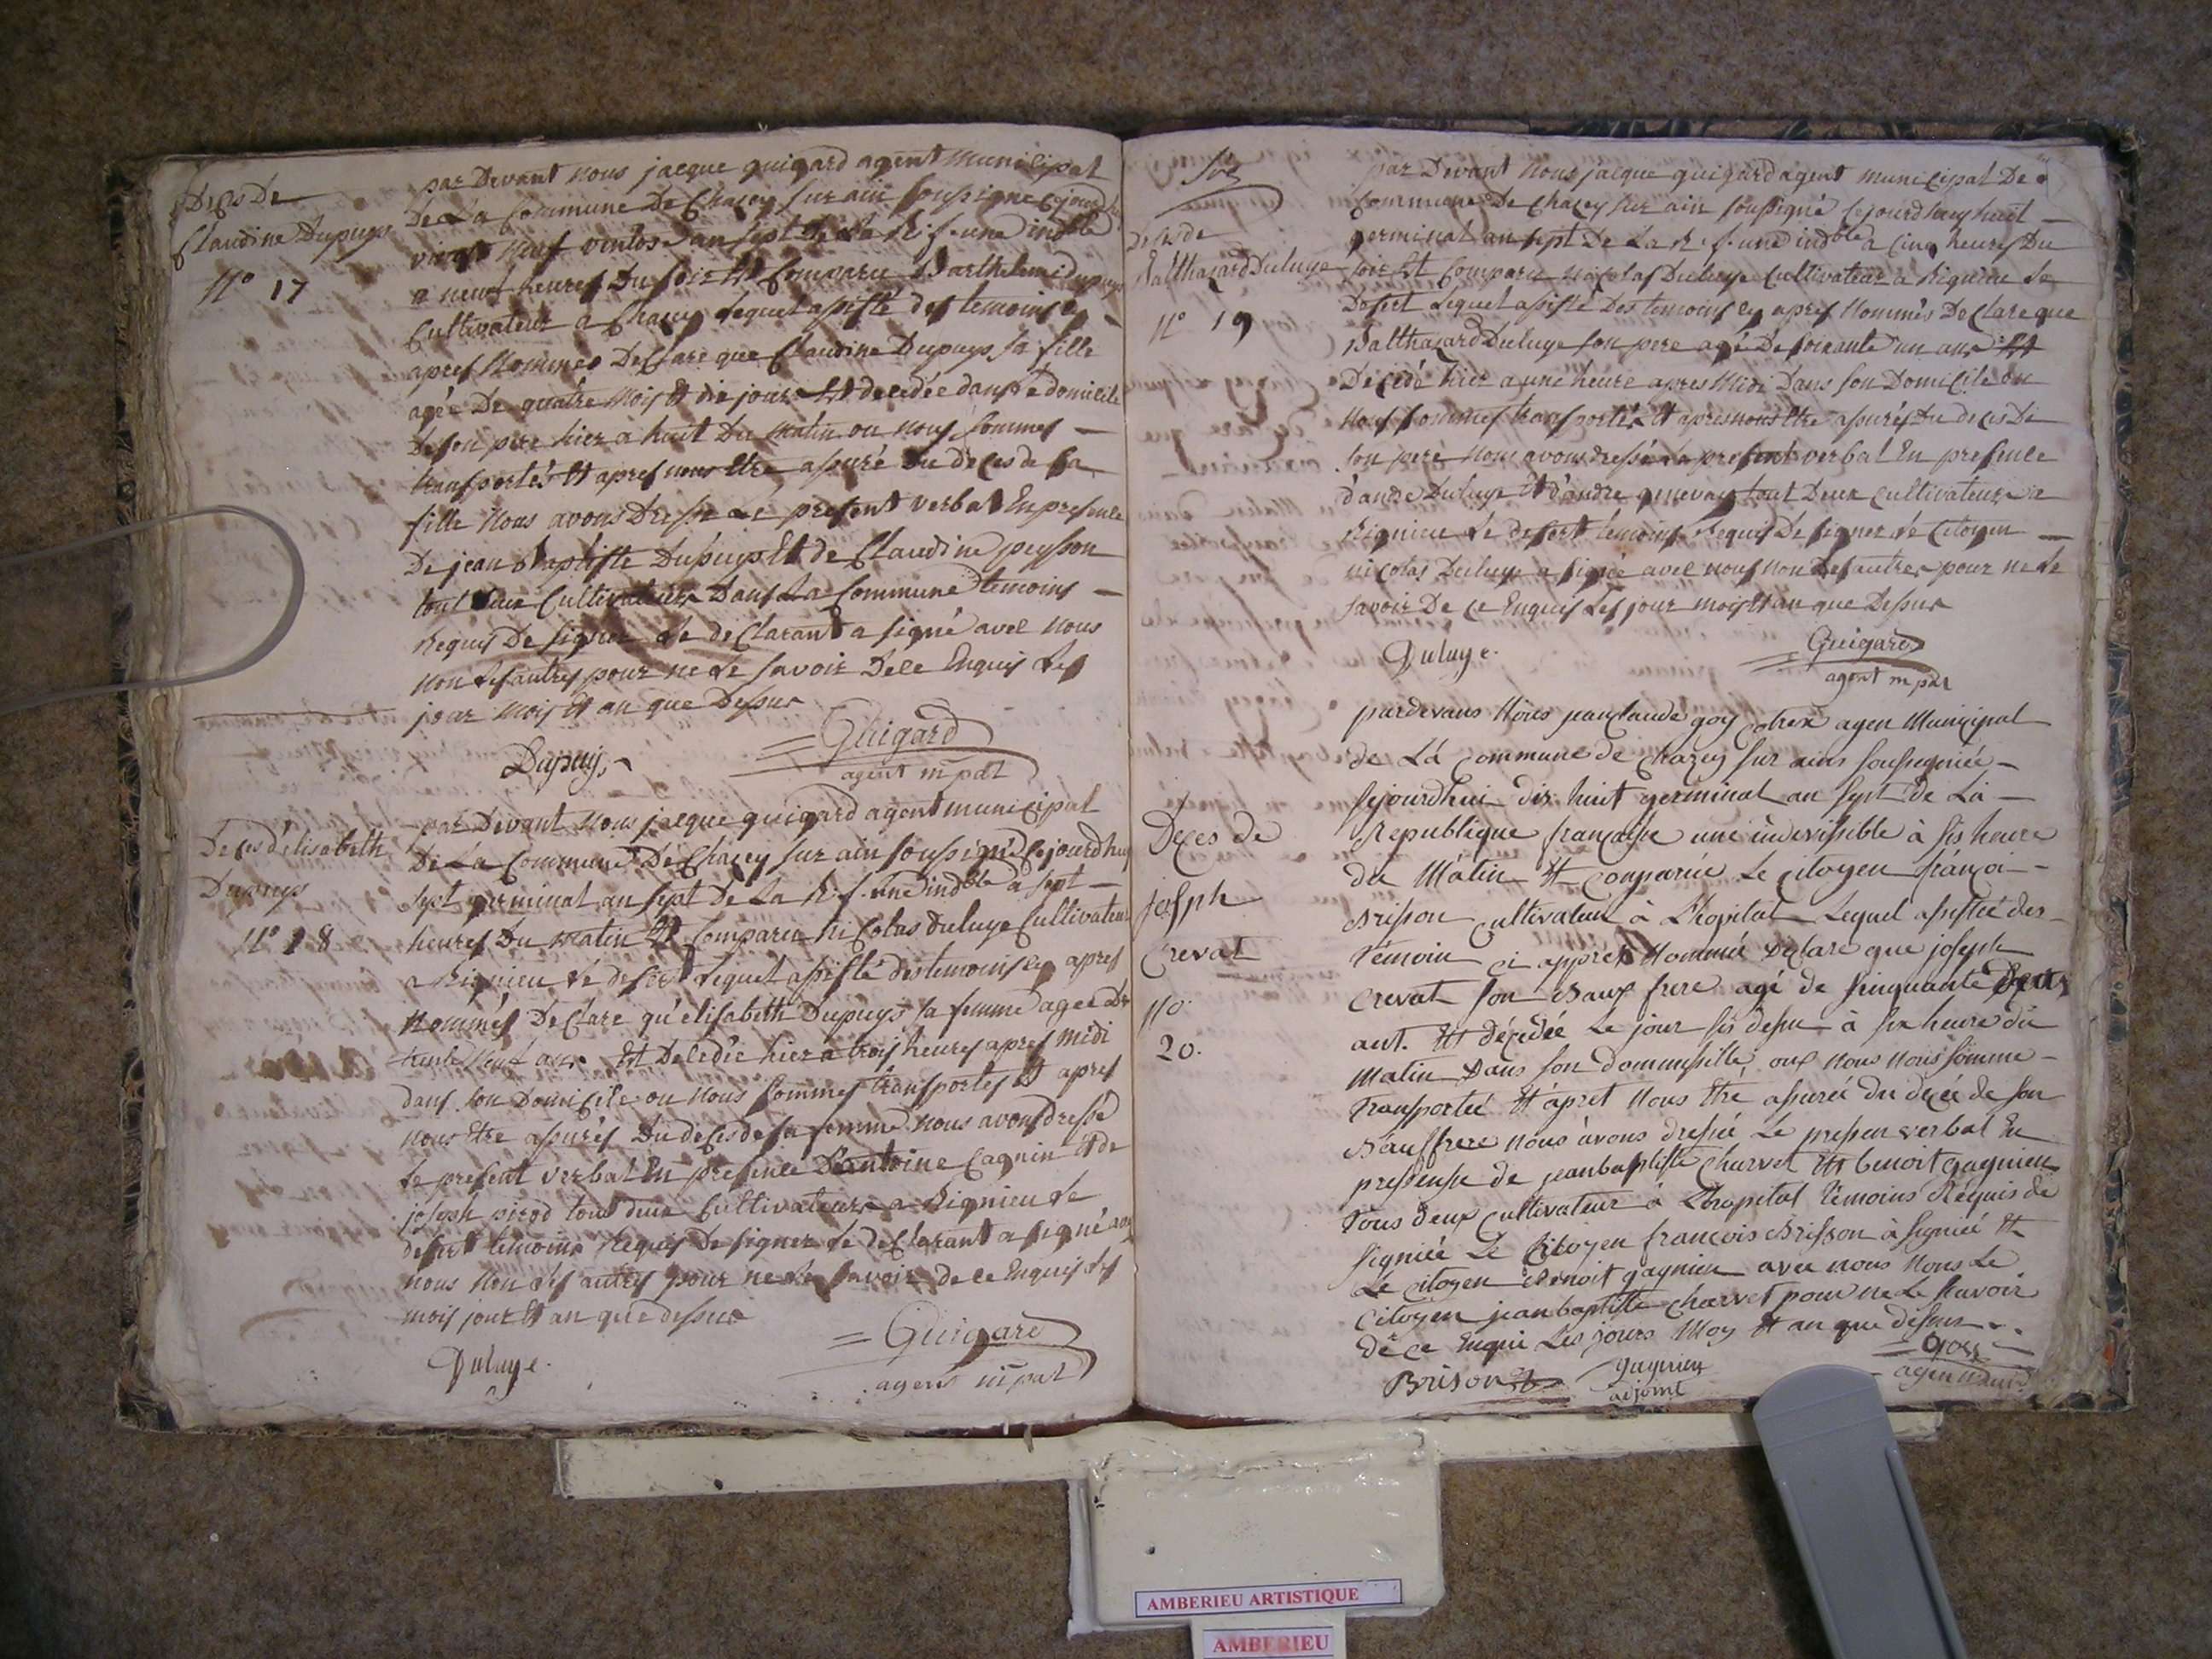 Deces De
Claudine Dupuys
N° 17
par Devant nous jacque guigard agent municipal
De La Commune De Chazey sur ain soussigné cejourdhuy
vingt neuf ventose an sept De La R. f. une indble
a neuf heures Du soir Est Comparu Barthelemi Dupuys
Cultivateur a Chazey Lequel assisté des temoins cy
apres Nommés Declare que Claudine Dupuys sa fille
agée De quatre mois Et dix jours Est decedée dans Le domicile
De son pere hier a huit Du matin ou nous sommes
transportés Et apres nous Etre assuré Du deces de sa
fille Nous avons Dressé Le present verbal En presence
De jean Baptiste Dupuys Et de Claudine peysson
tout Deux Cultivateurs Dans La Commune temoins
Requis De signer Le declarant a signé avec nous
non Les autres pour ne Le savoir De ce Enquis Les
jour mois Et an que Dessus
Dupuys
Guigard
agent m pal
Deces délisabeth
Dupuys
N° 18
par Devant Nous jacque guigard agent municipal
De La Commune De Chazey sur ain soussigné Cejourdhuy
sept germinal an sept De La R. f. une indble a sept
heures Du matin Est Comparu Nicolas Duluye Cultivateur
a Rignieu Le desert Lequel assisté des temoins cy apres
Nommés Declare qu'elisabeth Dupuys sa femme agee De
trente Neuf ans Est Decedée hier a trois heures apres midi
dans son Domicile ou Nous sommes transportes Et apres
nous Etre assurés Du deces de sa femme nous avons dressé
Le present verbal En presence D'antoine Cagnin Et de
joseph pirod tous deux Cultivateurs a Rignieu Le
desert temoins Requis De signer Le declarant a signé avec
nous Non Les autres pour ne Le savoir de ce Enquis Les
mois jour Et an que dessus
Duluye.
Guigard
agent m pal
deces de
Balthazard Duluye
N° 19
par Devant Nous jacque guigard agent municipal De
Commune De Chazey sur ain soussigné Cejourdhuy huit
germinal an sept De La R. f. une indble a cinq heures Du
soir Est Comparu nicolas Duluye Cultivateur a Rignieu Le
Desert Lequel assisté Des temoins cy apres Nommés Declare que
Balthazard Duluye son pere agé De soixante un ans Est
Decedé hier a une heure apres Midi Dans son Domicile ou
Nous sommes transportés Et apres nous Etre assurés Du deces De
son pere Nous avons dressé Le present verbal En presence
d'andre Duluye Et d'andre genevay tout Deux Cultivateurs a
Rignieu Le desert temoins Requis De signer Le Citoyen
nicolas Duluye a signé avec nous non Les autres pour ne Le
savoir De ce Enquis Les jour mois Et an que Dessus
Duluye.
Guigard
agent m pal
Deces de
joseph
Crevat
No.
20.
pardevans Nous jean claude goy agen Municipal
de La Commune de Chazey sur ains soussigniée
sejourdhui dix huit germinal an sept de La
Republique françaisse une indivissible à sis heure
du Mâtin Et comparue Le citoyen françoi
Brisson Cultivateur à L'hopital Lequel assistée des
témoin ci appres Nommée Déclare que joseph
Crevat son Baux frere agé de sinquante Deux
ant. Est Décedée Le jour sis desu à six heure du
matin Dans son dommissille oux nous nous somme
transportée Et àpret Nous Etre assurée du decée de son
Bauffrere nous àvons dressée Le pressen verbal En
pressense de jeanbaptiste Charvet Et benoit gagnieu
tous deux Cultivateur à L'hopital témoins Requis de
signiée Le Citoyen francois Brisson à signiée Et
Le Citoyen Benoit gagnieu avec nous Nons Le
Citoyen jeanbaptiste Charvet pour ne Le savoir
de ce Enqui Les jours Moy Et an que desus
Brison
gagnieu
adjoint
goy
agen
AMBERIEU ARTISTIQUE
AMBERIEU